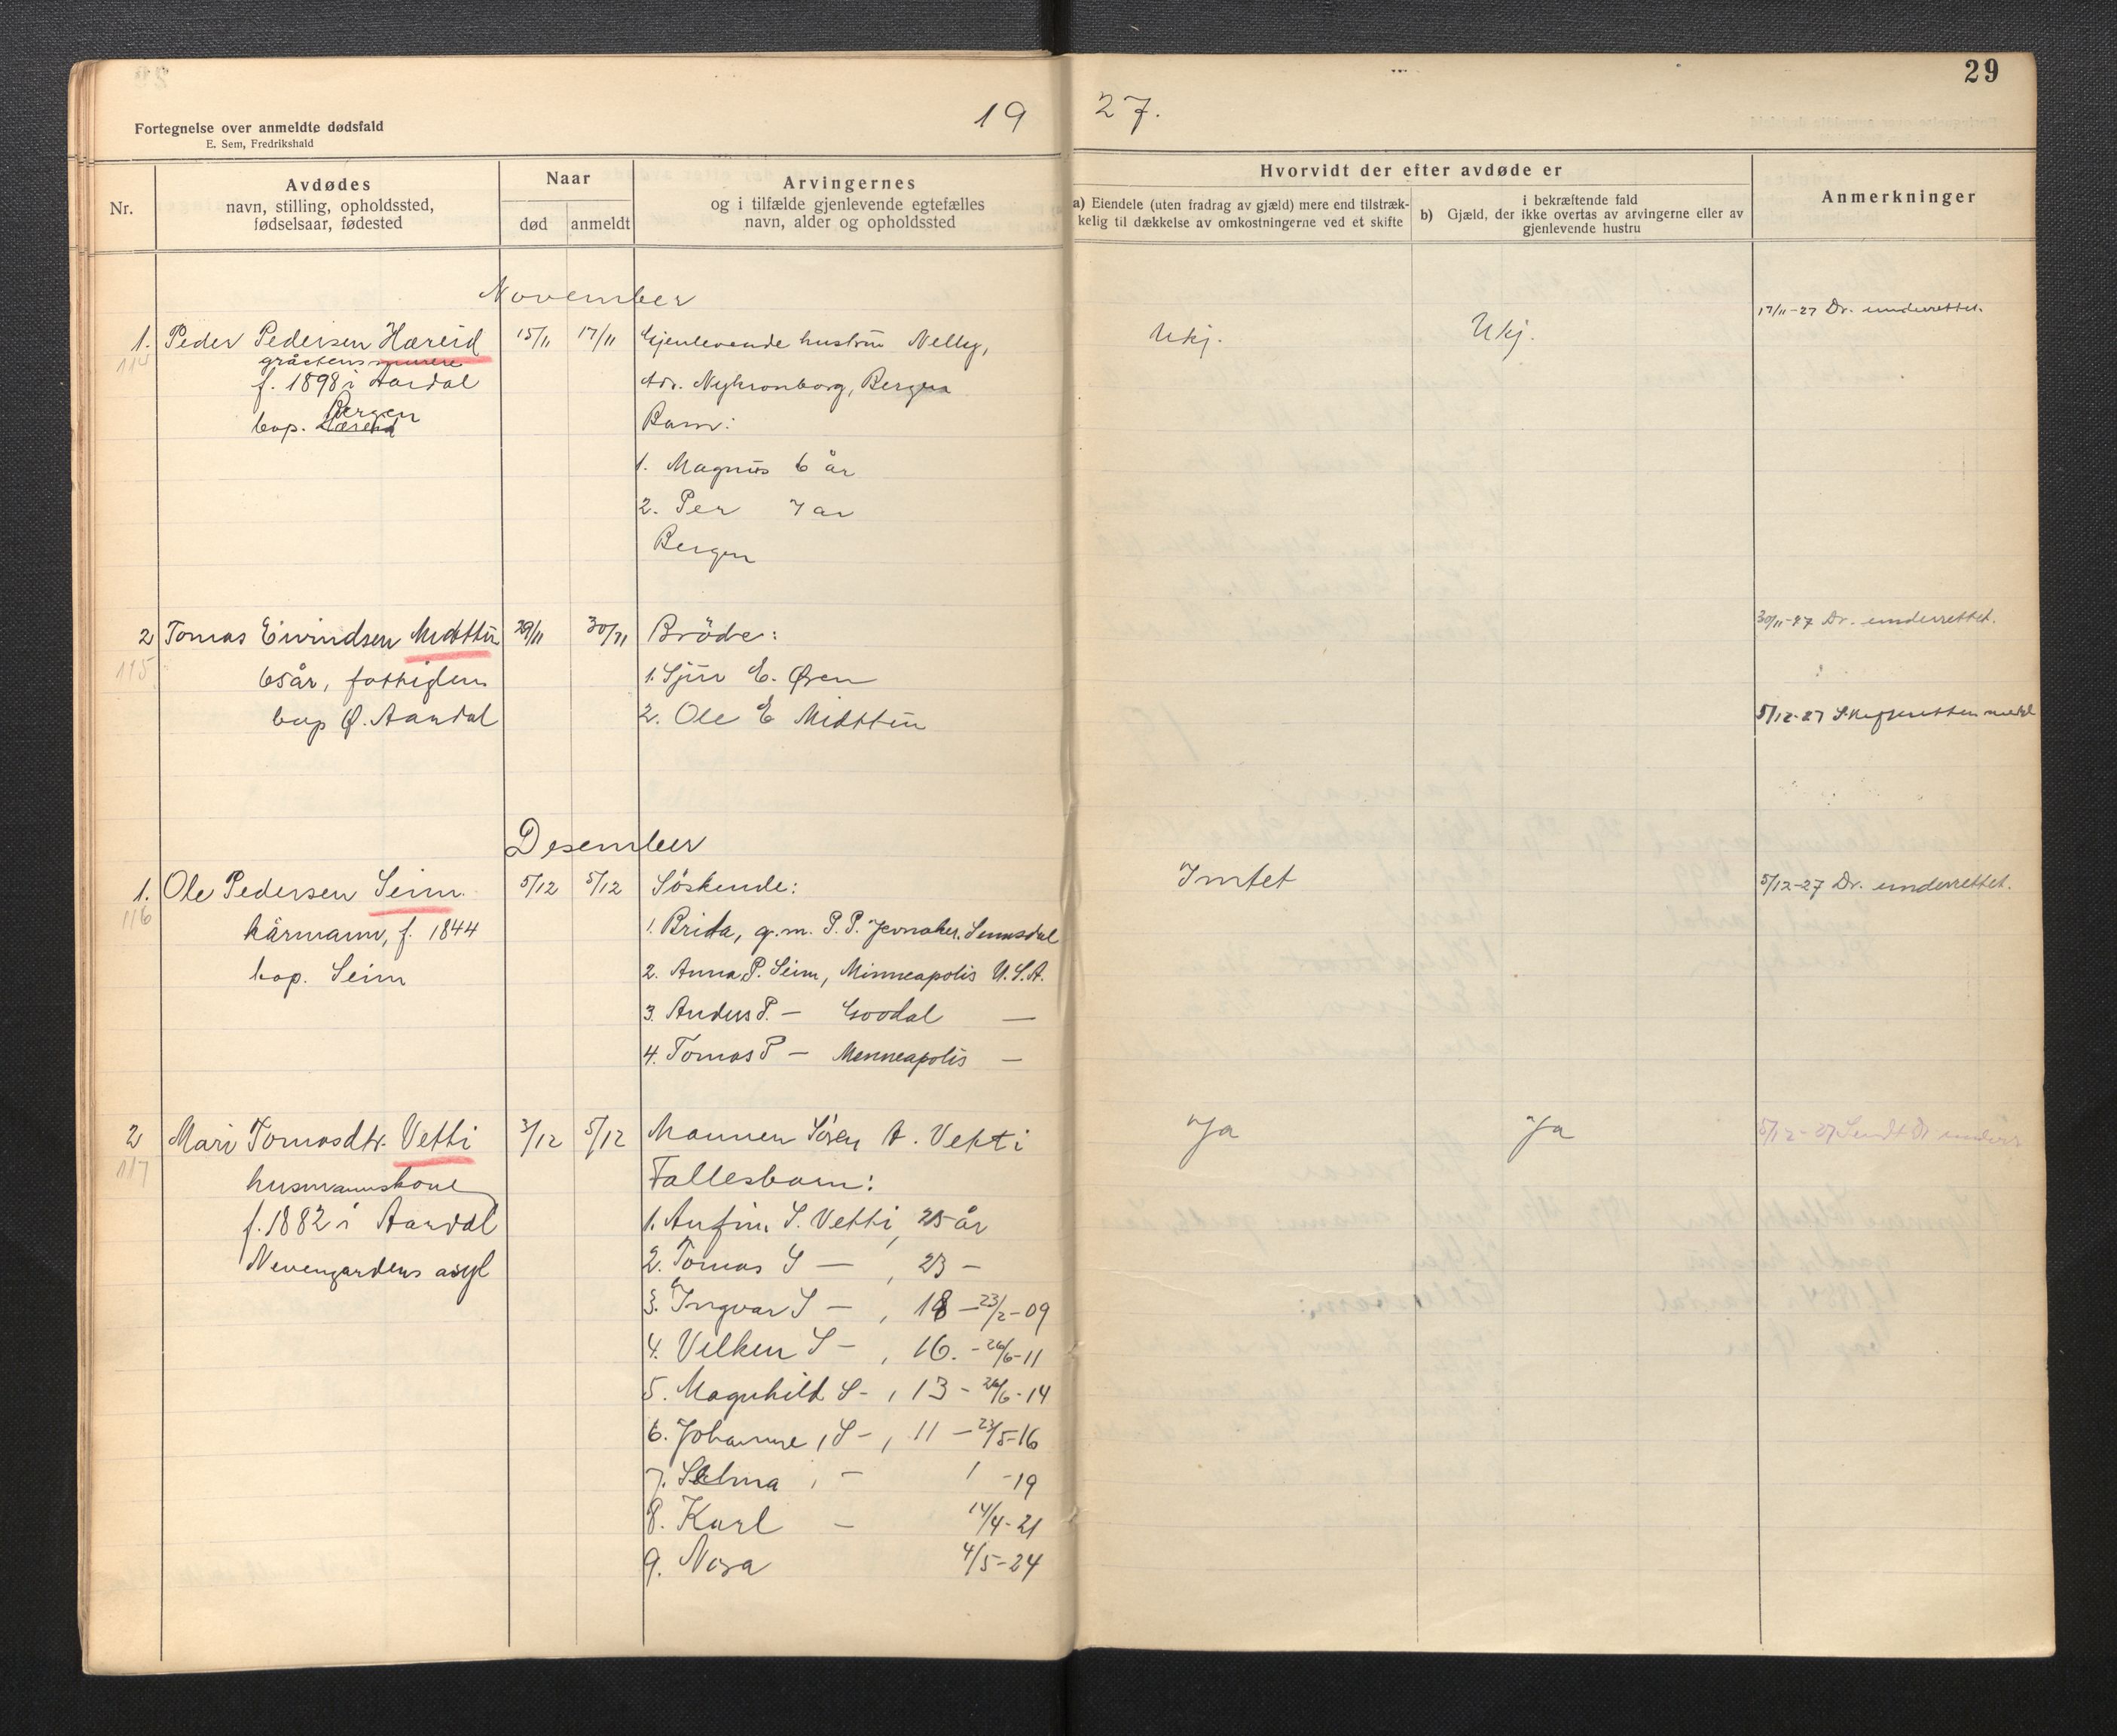 29
19 27.
Fortegnelse over anmeldte dødsfald
E. Sem, Fredrikshald
Nr.
Avdødes
navn, stilling, opholdssted,
fødselsaar, fødested
Naar
død
anmeldt
Arvingernes
og i tilfælde gjenlevende egtefælles
navn, alder og opholdssted
Hvorvidt der efter avdøde er
a) Eiendele (uten fradrag av gjæld) mere end tilstræk-
kelig til dækkelse av omkostningerne ved et skifte
i bekræftende fald
b) Gjæld, der ikke overtas av arvingerne eller av
gjenlevende hustru
Anmerkninger
November
17/11-27 Dr. underrettet.
1. Peder Pedersen Hæreid 15/11 17/11 Gjenlevende hustru Nelly, Ukj. Ukj.
gråstensmurer
f. 1898 i Aardal
adr. Nykronborg, Bergen
Bergen
bop.
Barn:
1. Magnus 6 år
2. Per 7 ar
Bergen
30/11-27 Dr. underrettet.
2 Tomas Eivindsen Midttun 29/11 30/11 Brödre:
115
65år, fattiglem
1. Sjur E. Øren
bop Ø. Aardal
2. Ole E Midttun
5/12-27 Skifteretten
Desember
1. Ole Pedersen Seim. 5/12 5/12 Söskende: Intet 5/12-27 Dr. underrettet.
116
kårmann, f. 1844
1. Brita, g.m. P. P.
bop. Seim
2. Anna P. Seim, Minneapolis U.S.A.
3. Anders P. —  —
4. Tomas P — Menneapolis —
2 Mari Tomasdtr. Vetti 3/12 5/12 Mannen Sören A. Vetti Ja Ja 5/12-27 Sendt Dr underr
117
husmannskone
Fallesbarn:
f. 1882 i Aardal
1. Anfin S. Vetti, 25 år
Nevengardens asyl
2. Tomas S — , 23 —
3. Ingvar S — , 18 — 23/2-09
4. Vilken S — , 16. - 26/6-11
5. Magnhild S - , 13 - 26/6-14
6. Johanne, S - , 11 — 23/5-16
7. Selma , — / -19
8. Karl — 14/4-21
9. Nora 4/5-24